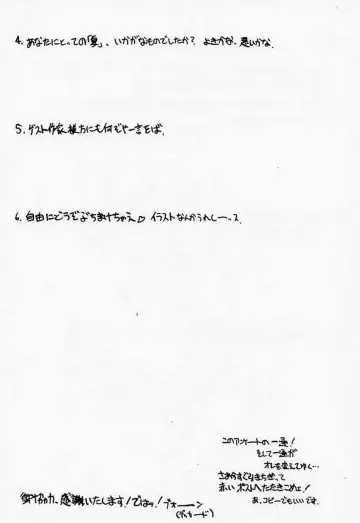 4. あなたにとっての「夏」、いかがなものでしたか? よきかな、悪いかな.
5. ゲスト作家様方にも何ぞや一言をば.
6. 自由にどうぞぶちまけちゃえ♡ イラストなんかうれしーっス
このアンケートの一通!
そして一通が
オレを変えてゆく…
さあ今すぐ引きちぎって
赤いポストへたたきこめ!
あ、コピーでもいいです。
御協力、感謝いたします! ではッ!